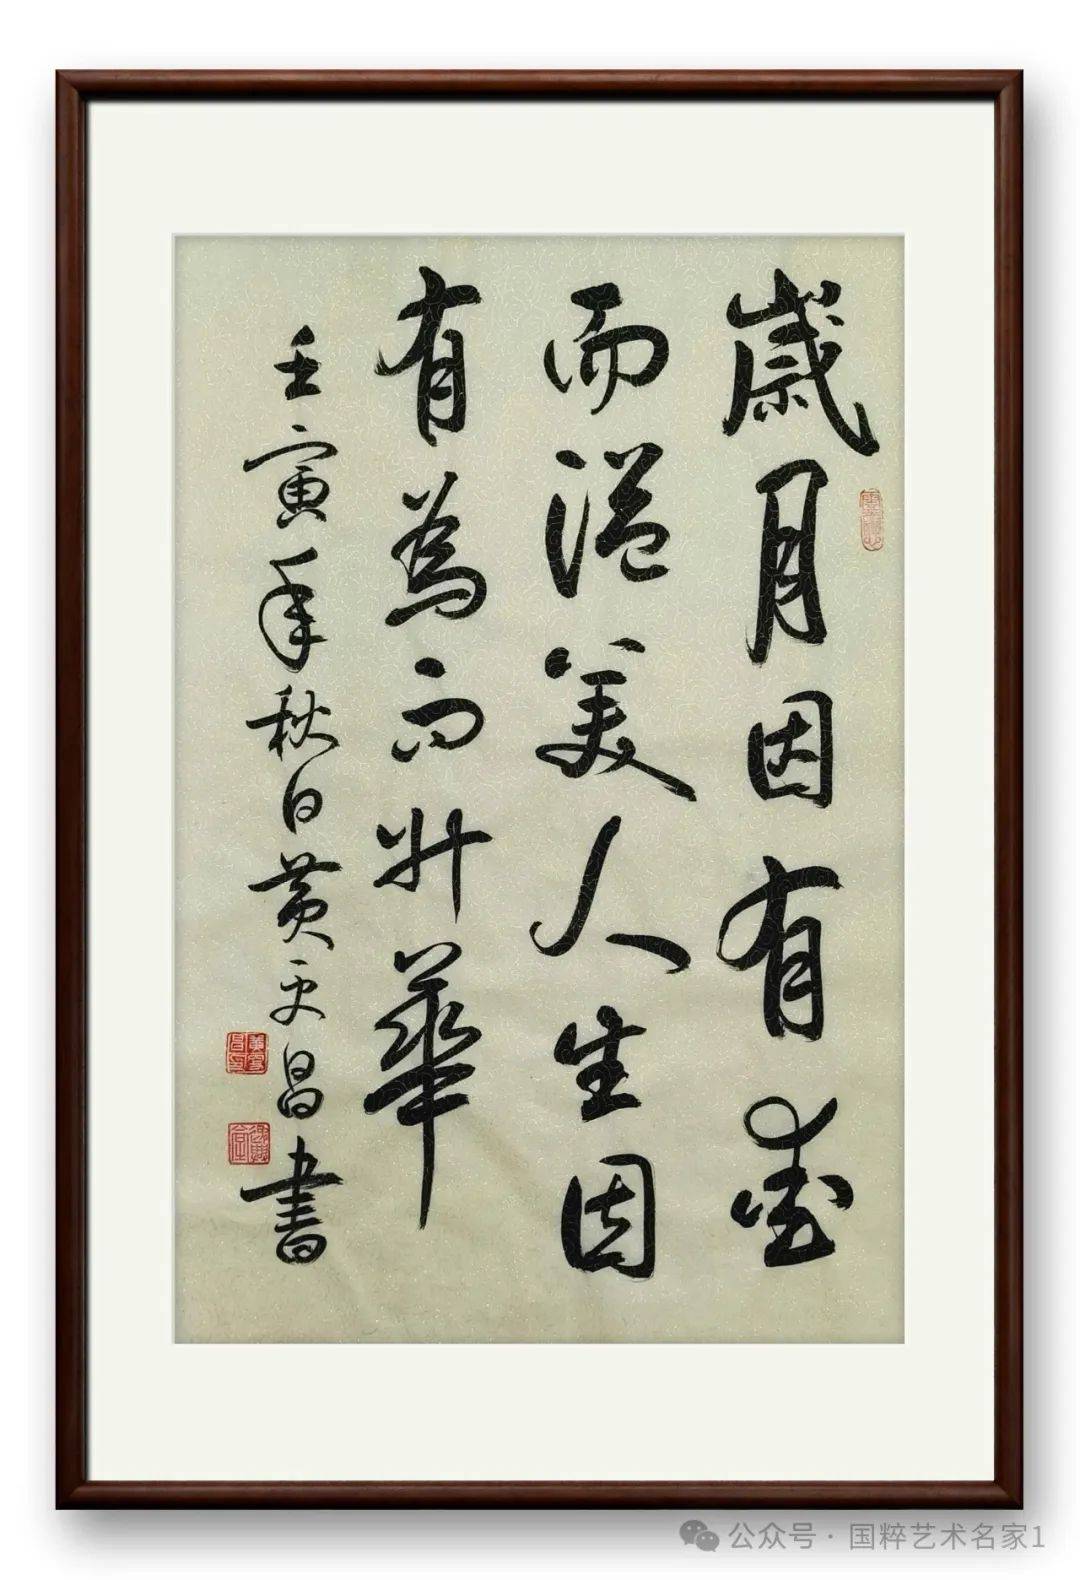 歲月因有愛
而溢美人生因
有為而升華
壬寅年秋日黄昌書
公众号·国粹艺术名家1